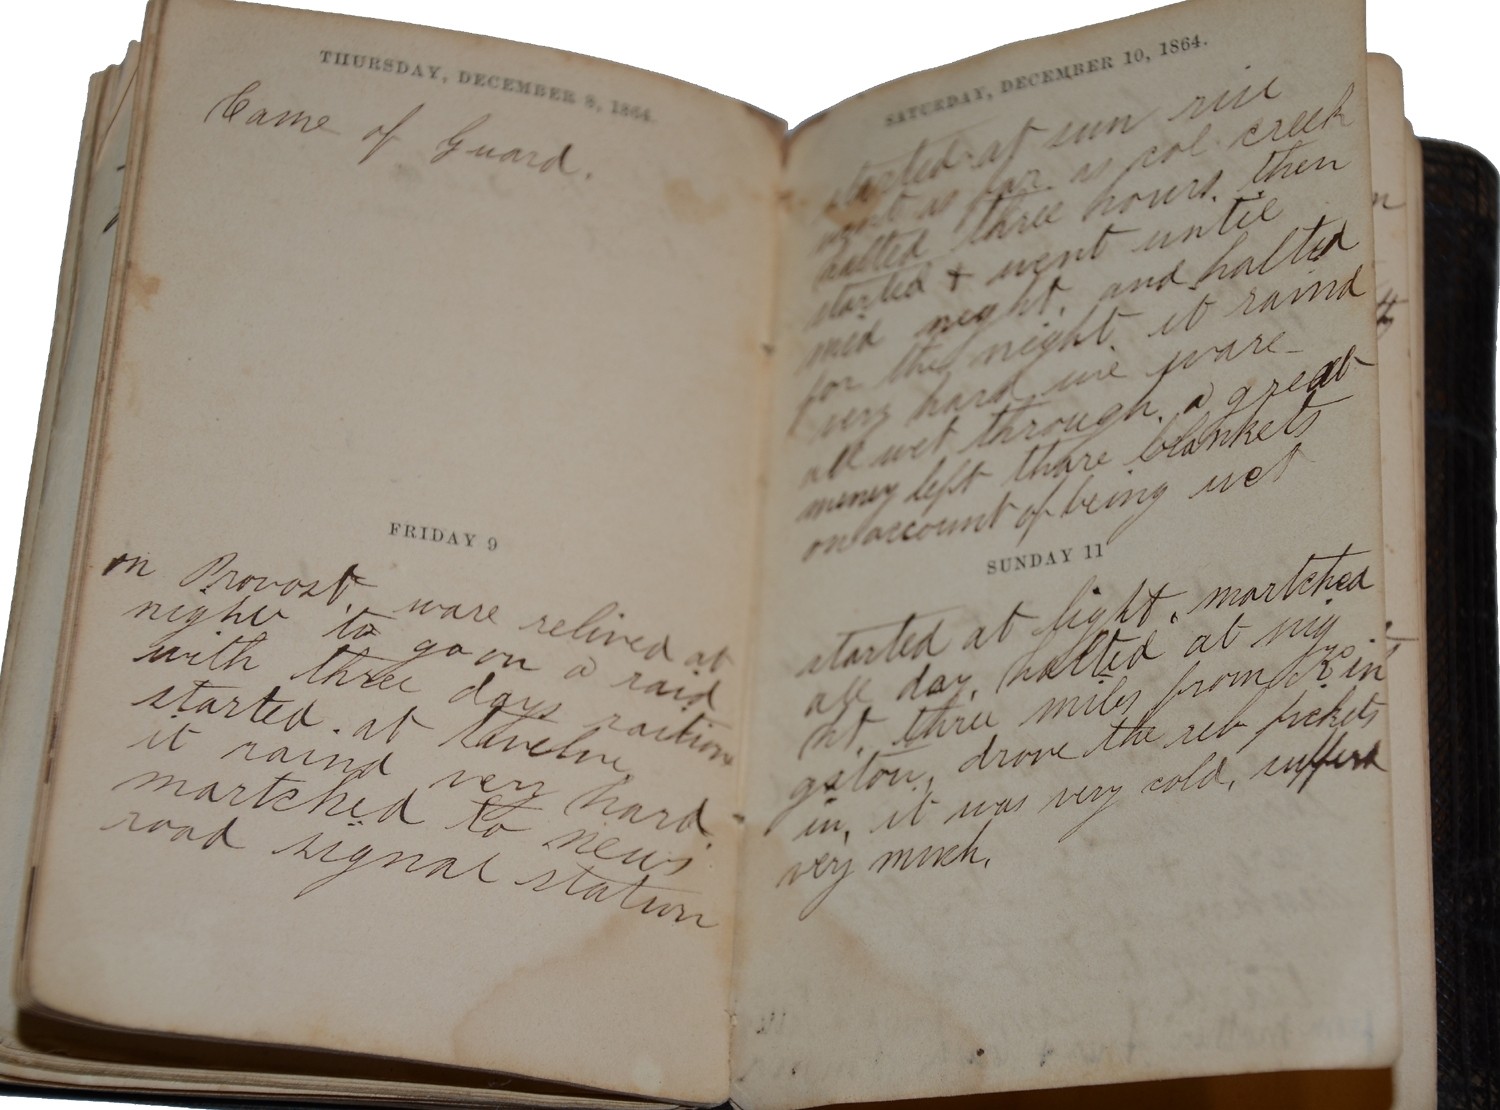 THURSDAY, DECEMBER 8, 1864.
Came of Guard.
FRIDAY 9
on Provost. ware relived at
night to go on a raid
with three days rations
started at twelve
it raind very hard
martched to news
road signal station
SATURDAY, DECEMBER 10, 1864.
started at sun rise
went as far as col creek
halted three hours. then
started + went untie
med night. and halted
for the night. it raind
very hard we ware
all wet through. a great
meney left thare blankets
on account of being wet
SUNDAY 11
started at light. martched
all day. halted at nig
ht. three miles from Kin
gston. drove the reb pickets
in. it was very cold. sufferd
very much.